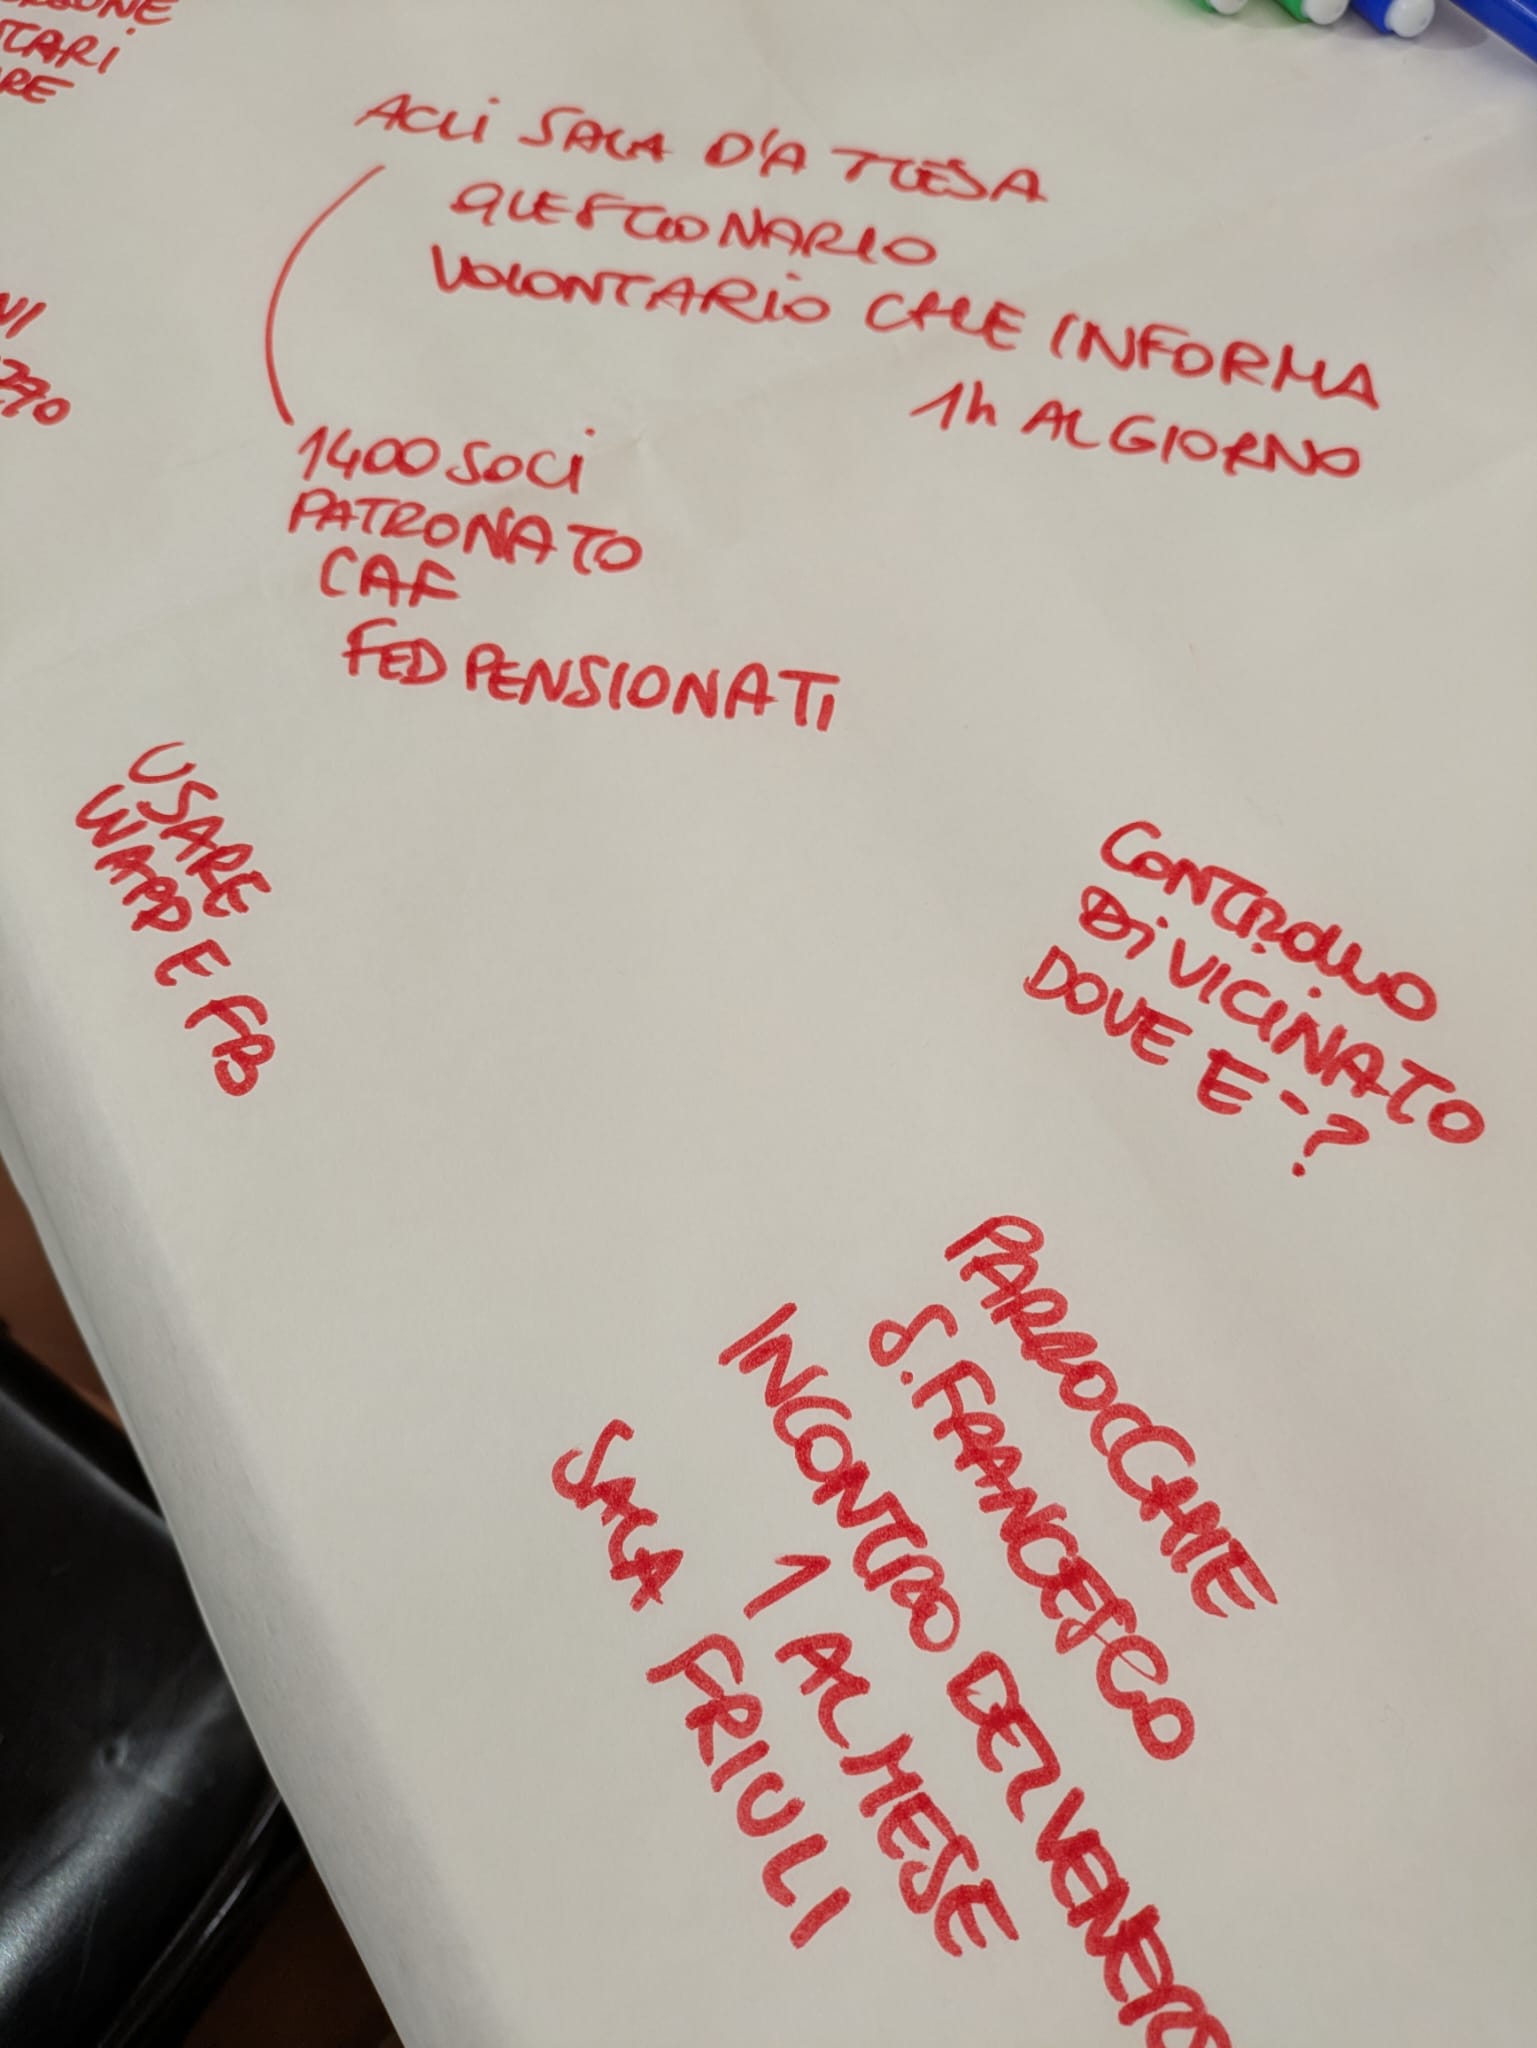 TARI
RE
ACLI SALA D'ATTESA
QUESTIONARIO
VOLONTARIO CHE INFORMA
1h AL GIORNO
1400 SOCI
PATRONATO
CAF
FED PENSIONATI
USARE
WAPP E FB
CONTROLLO
Di VICINATO
DOVE E-?
PARROCCHIE
S. FRANCESCO
INCONTRO DEL VENERD
1 AL MESE
SALA FRIULI